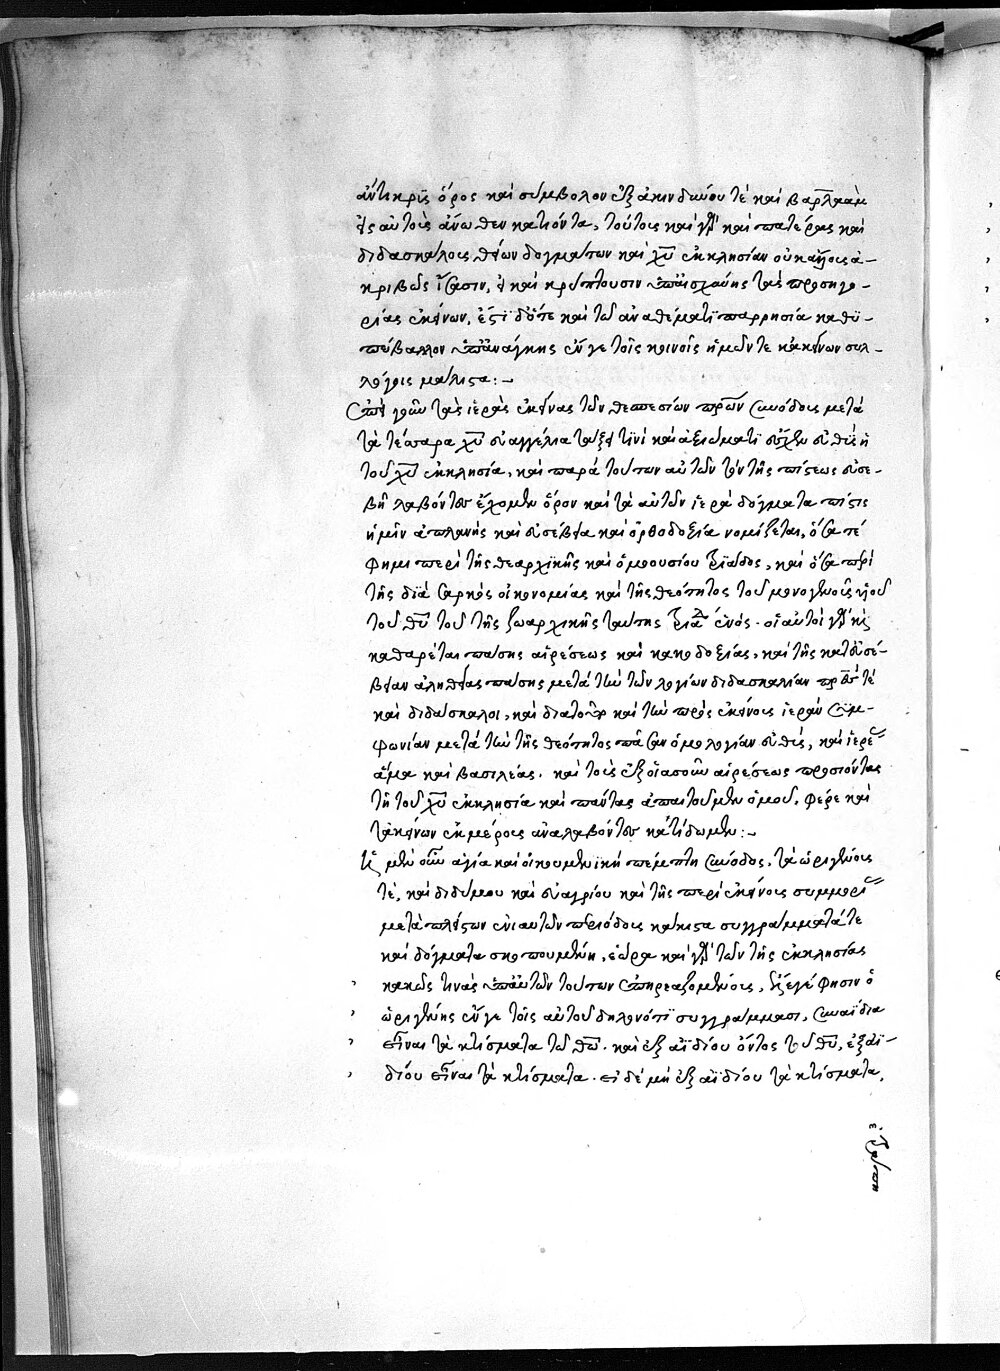 ἄντικρυς ὅρος καὶ σύμβολον ἐξ ἀκινδύνου τὲ καὶ βαρλαὰμ
εἰς αὐτοὺς ἄνωθεν κατιόντα, τούτοις καὶ γὰρ καὶ πατέρας καὶ
διδασκάλους θείων δογμάτων καὶ χυ ἐκκλησίαν οὐκ ἄλλους ἀ-
κριβῶς ἴσασιν, εἰ καὶ κρύπτουσιν ὑπαισχύνης τὰς προσηγο-
ρίας ἐκείνων, ἔστι δ' ὅτε καὶ τῶ ἀναθέματι παρρησία καθϋ-
πέβαλλον ὑπανάγκης ἔν γε τοῖς κοινοῖς ἡμῶν τε κἀκείνων συλ-
λόγοις μάλιστα:-
ἐπεὶ γοῦν τὰς ἱερὰς ἐκείνας τῶν θεσπεσίων πρων συνόδους μετὰ
τὰ τέσσαρα χυ εὐαγγέλια τάξει τινὶ καὶ ἀξιώματι στέργειν εὐθὺς ἡ
τοῦ χυ ἐκκλησία, καὶ παρὰ τούτων αὐτῶν τὸν τῆς πίστεως εὐσε-
βῆ λαβόντες ἔχομεν ὅρον καὶ τὰ αὐτῶν ἱερὰ δόγματα πίστις
ἡμῖν ἀπλανὴς καὶ εὐσέβεια καὶ ὀρθοδοξία νομίζεται, ὅσα τέ
φημι περὶ τῆς θεαρχικῆς καὶ ὁμοουσίου τριάδος, καὶ ὅσα περὶ
τῆς διὰ σαρκὸς οἰκονομίας καὶ τῆς θεότητος τοῦ μονογενοῦς υἱοῦ
τοῦ θυ τοῦ τῆς ζωαρχικῆς ταύτης τριάδ ἑνός. οἱ αὐτοὶ γὰρ καὶ
καθαιρέται πάσης αἱρέσεως καὶ κακοδοξίας, καὶ τῆς κατευσέ-
βειαν ἀληθείας πάσης μετὰ τὴν τῶν λογίων διδασκαλίαν πρες τὲ
καὶ διδάσκαλοι, καὶ διατοῦτο καὶ τὴν πρὸς ἐκείνους ἱερὰν συμ-
φωνίαν μετὰ τὴν τῆς θεότητος πᾶσαν ὁμολογίαν εὐθὺς, καὶ ἱερεῖς
ἅμα καὶ βασιλέας. καὶ τοὺς ἐξ οἱασοῦν αἱρέσεως προσιόντας
τῆ τοῦ χυ ἐκκλησία καὶ πάντας ἀπαιτοῦμεν ὁμοῦ, φέρε καὶ
τἀκείνων ἐκμέρους ἀναλαβόντες κατίδωμεν:-
ἡ μὲν οὖν ἁγία καὶ οἰκουμενικὴ πέμπτη σύνοδος, τὰ ὠριγένους
τὲ, καὶ διδύμου καὶ εὐαγρίου καὶ τῆς περὶ ἐκείνους συμμορίας
μετὰ πλείστων ἐνιαυτῶν περιόδους κάκιστα συγγράμματά τε
καὶ δόγματα σκοπουμένη, ἑώρα καὶ γὰρ τῶν τῆς ἐκκλησίας
κακῶς τινὰς ὑπαὐτῶν τούτων ἐπηρεαζομένους, ἐξεγέ φησιν ὁ
ὠριγένης ἔν γε τοῖς αὐτοῦ δηλονότι συγγράμμασι, συναΐδια
εἶναι τὰ κτίσματα τῶ θω. καὶ ἐξ ἀϊδίου ὄντος τοῦ θυ, ἐξ ἀϊ-
δίου εἶναι τὰ κτίσματα. εἰ δὲ μὴ ἐξ ἀϊδίου τὰ κτίσματα,
ἐτράπη